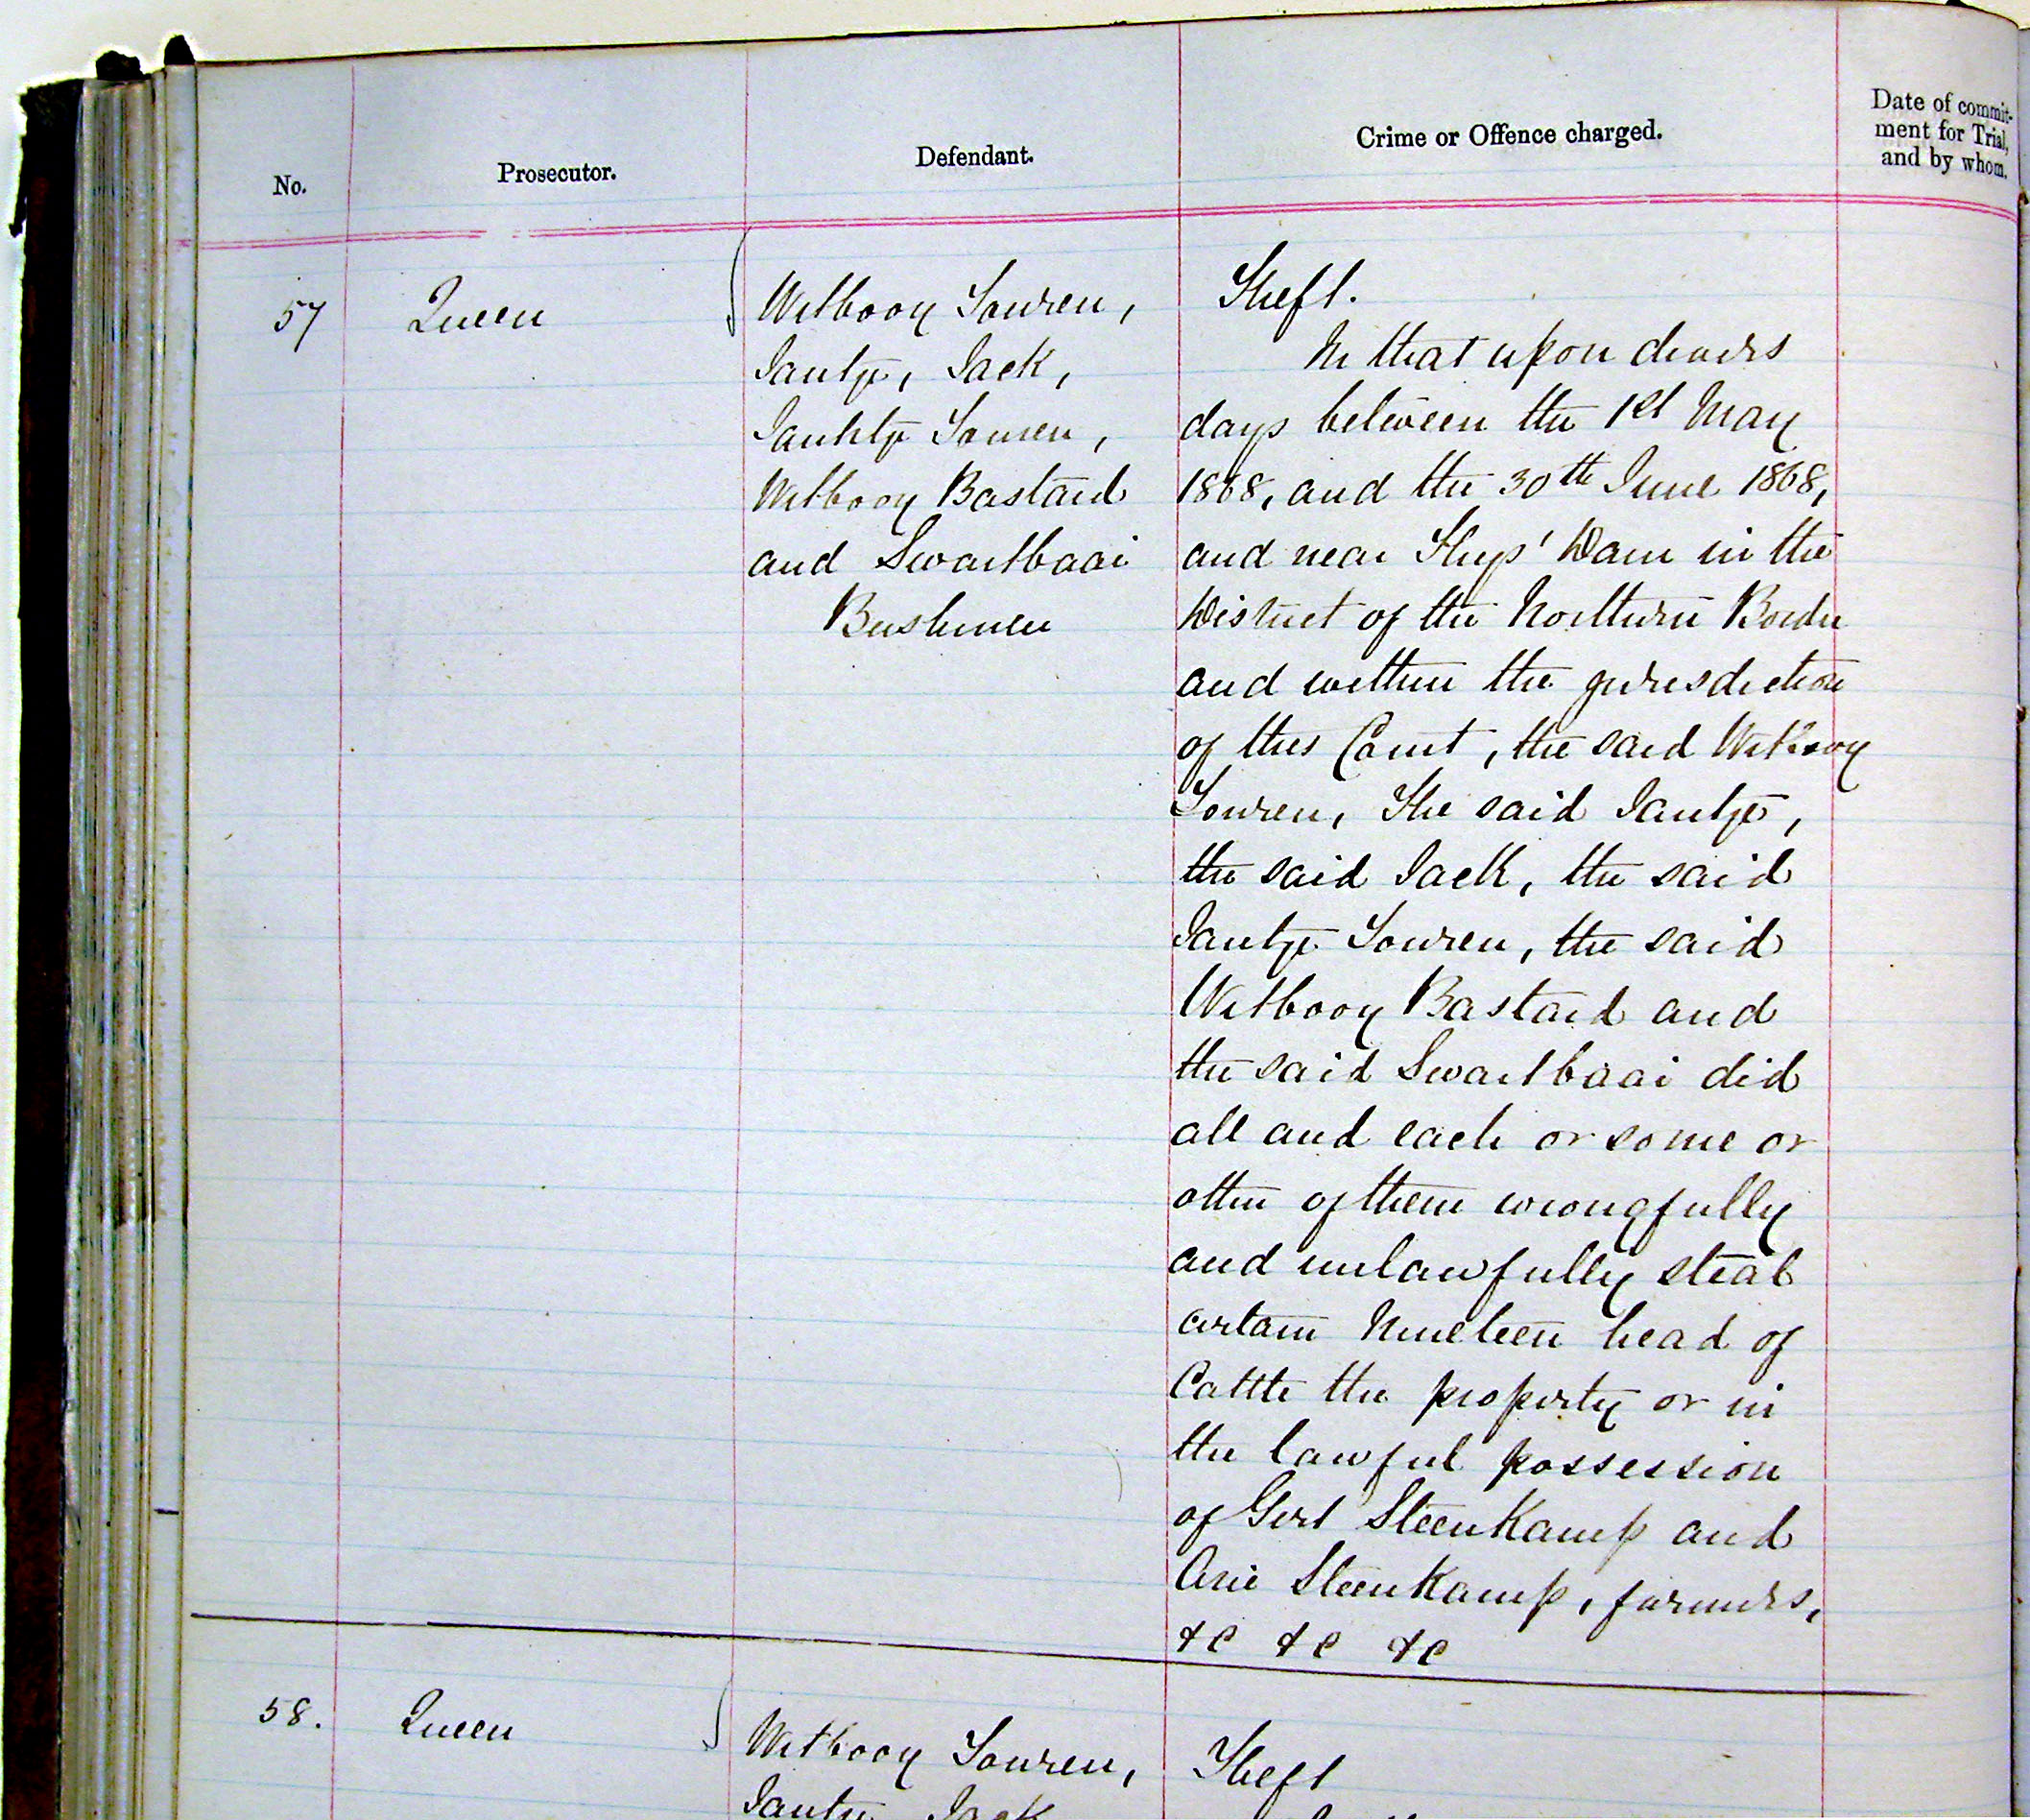 No.
Prosecutor.
Defendant.
Crime or Offence charged.
Date of commit-
ment for Trial,
and by whom.
57
Queen
Witbooy Touren,
Jantje, Jack,
Jantje Touren,
Witbooy Bastard
and Swartbaai
Bushmen
Theft.
In that upon divers
days between the 1st May
1868, and the 30th June 1868,
and near Thys' Dam in the
District of the Northern Border
and within the jurisdiction
of this Court, the said Witbooy
Touren, The said Jantje,
the said Jack, the said
Jantje Touren, the said
Witbooy Bastard and
the said Swartbaai did
all and each or some or
other of them wrongfully
and unlawfully steal
certain Nineteen head of
Cattle the property or in
the lawful possession
of Gert Steenkamp and
Arie Steenkamp, farmers,
&c &c &c
58.
Queen
Witbooy Touren,
Jantje Jack
Theft